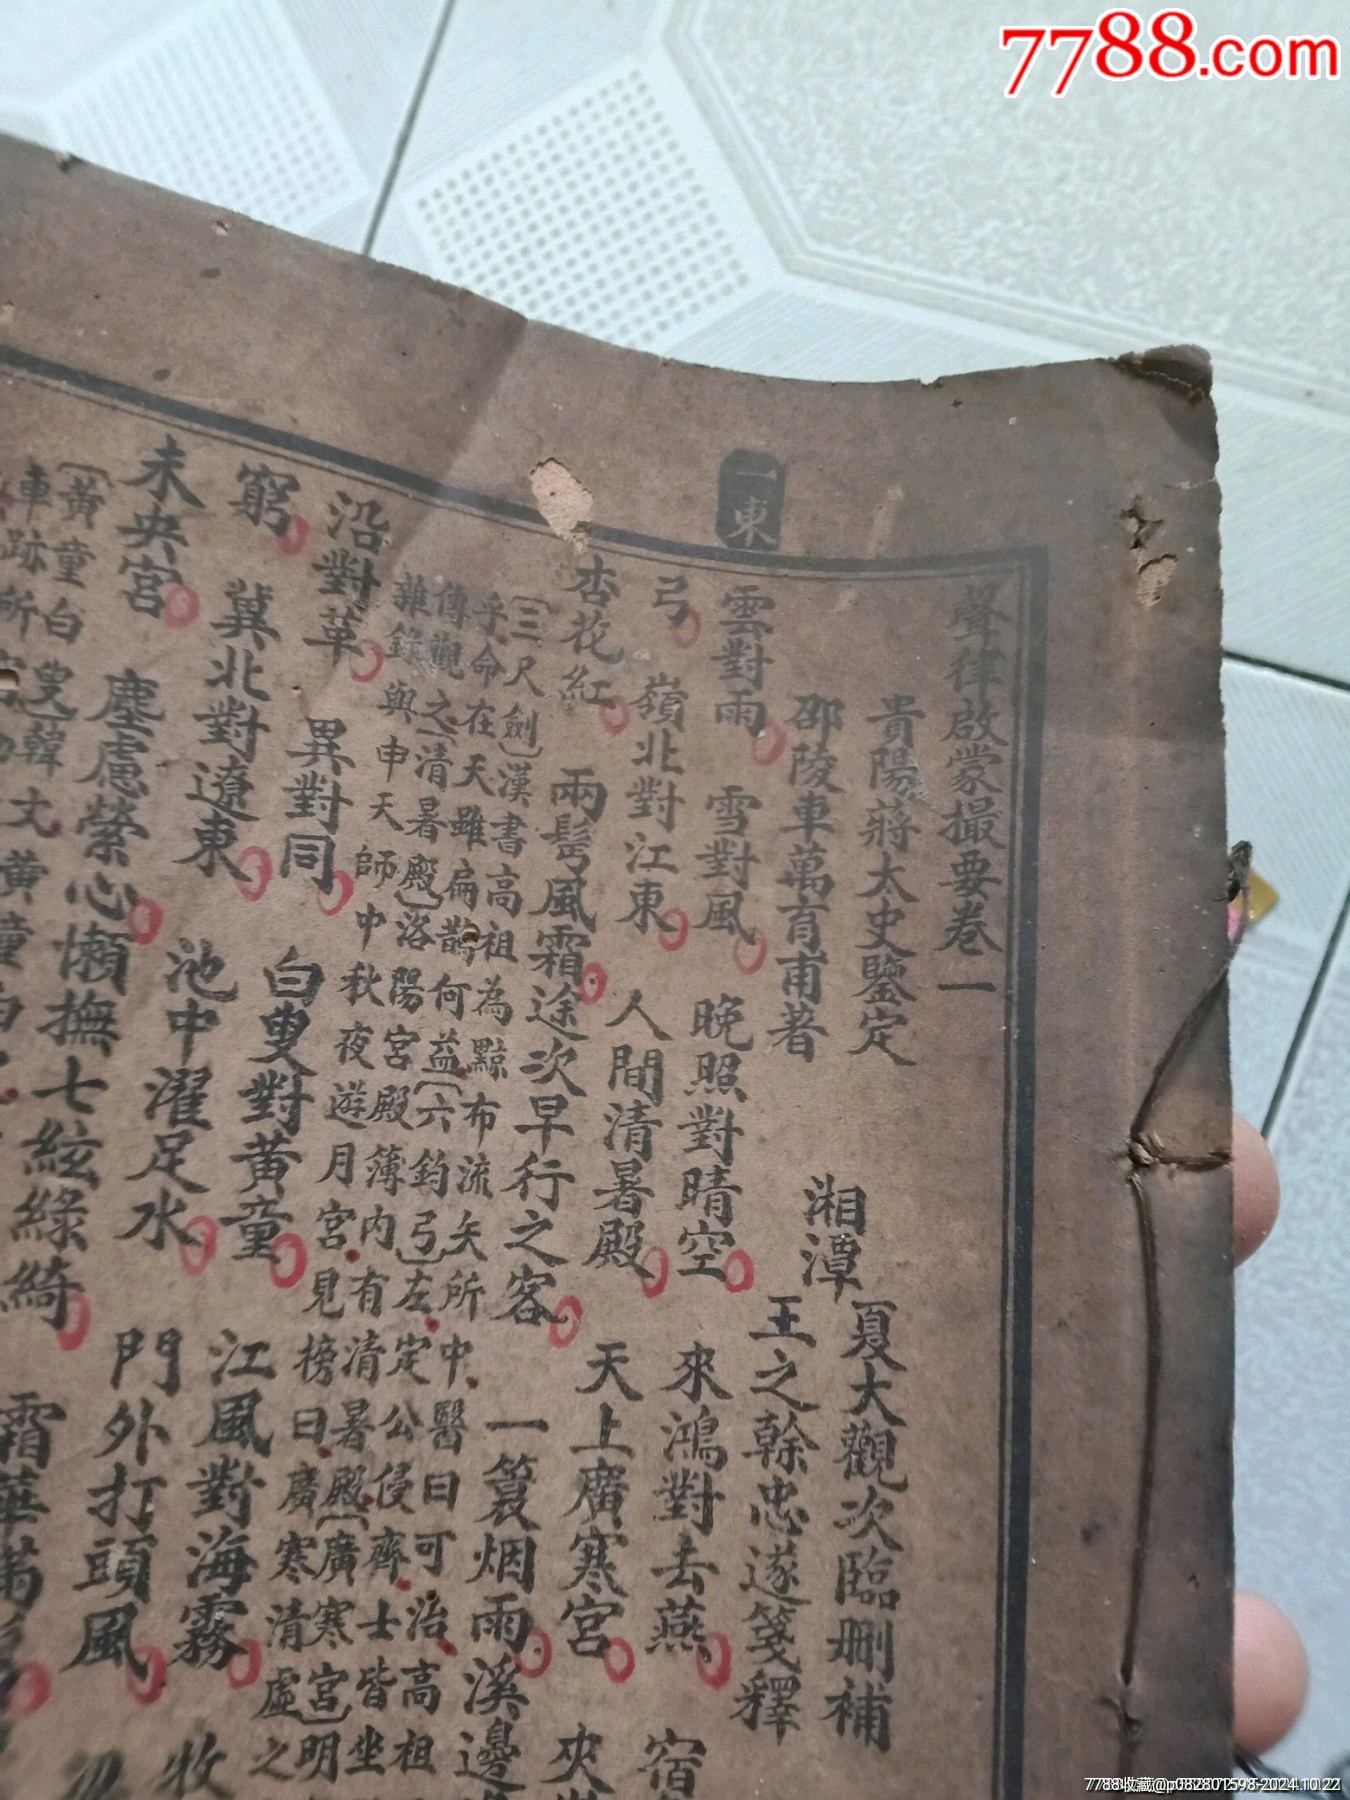 7788.com
一東
聲律啟蒙撮要卷一
貴陽蔣太史鑒定
夏大觀次臨刪補
邵陵車萬育甫著
湘潭
王之幹忠遂箋釋
雲對雨 雪對風 晚照對晴空 來鴻對去燕 宿
弓 嶺北對江東 人間清暑殿 天上廣寒宮 夾
杏花紅 兩髩風霜途次早行之客 一簑烟雨溪邊
〔三尺劍〕漢書高祖為黥布流矢所中醫曰可治高祖
乎命在天雖扁鵲何益〔六鈞弓〕左定公侵齊士皆坐
傳觀之〔清暑殿〕洛陽宮殿簿內有清暑殿〔廣寒宮〕明
雜錄與申天師中秋夜遊月宮見榜曰廣寒清虛之
沿對革 異對同 白叟對黃童 江風對海霧 牧
窮 冀北對遼東 池中濯足水 門外打頭風
未央宮 塵慮縈心懶撫七絃綠綺 霜華滿
〔黃童白叟〕韓文黃童白
車跡所
7788收藏@p082801598-2024.10.22